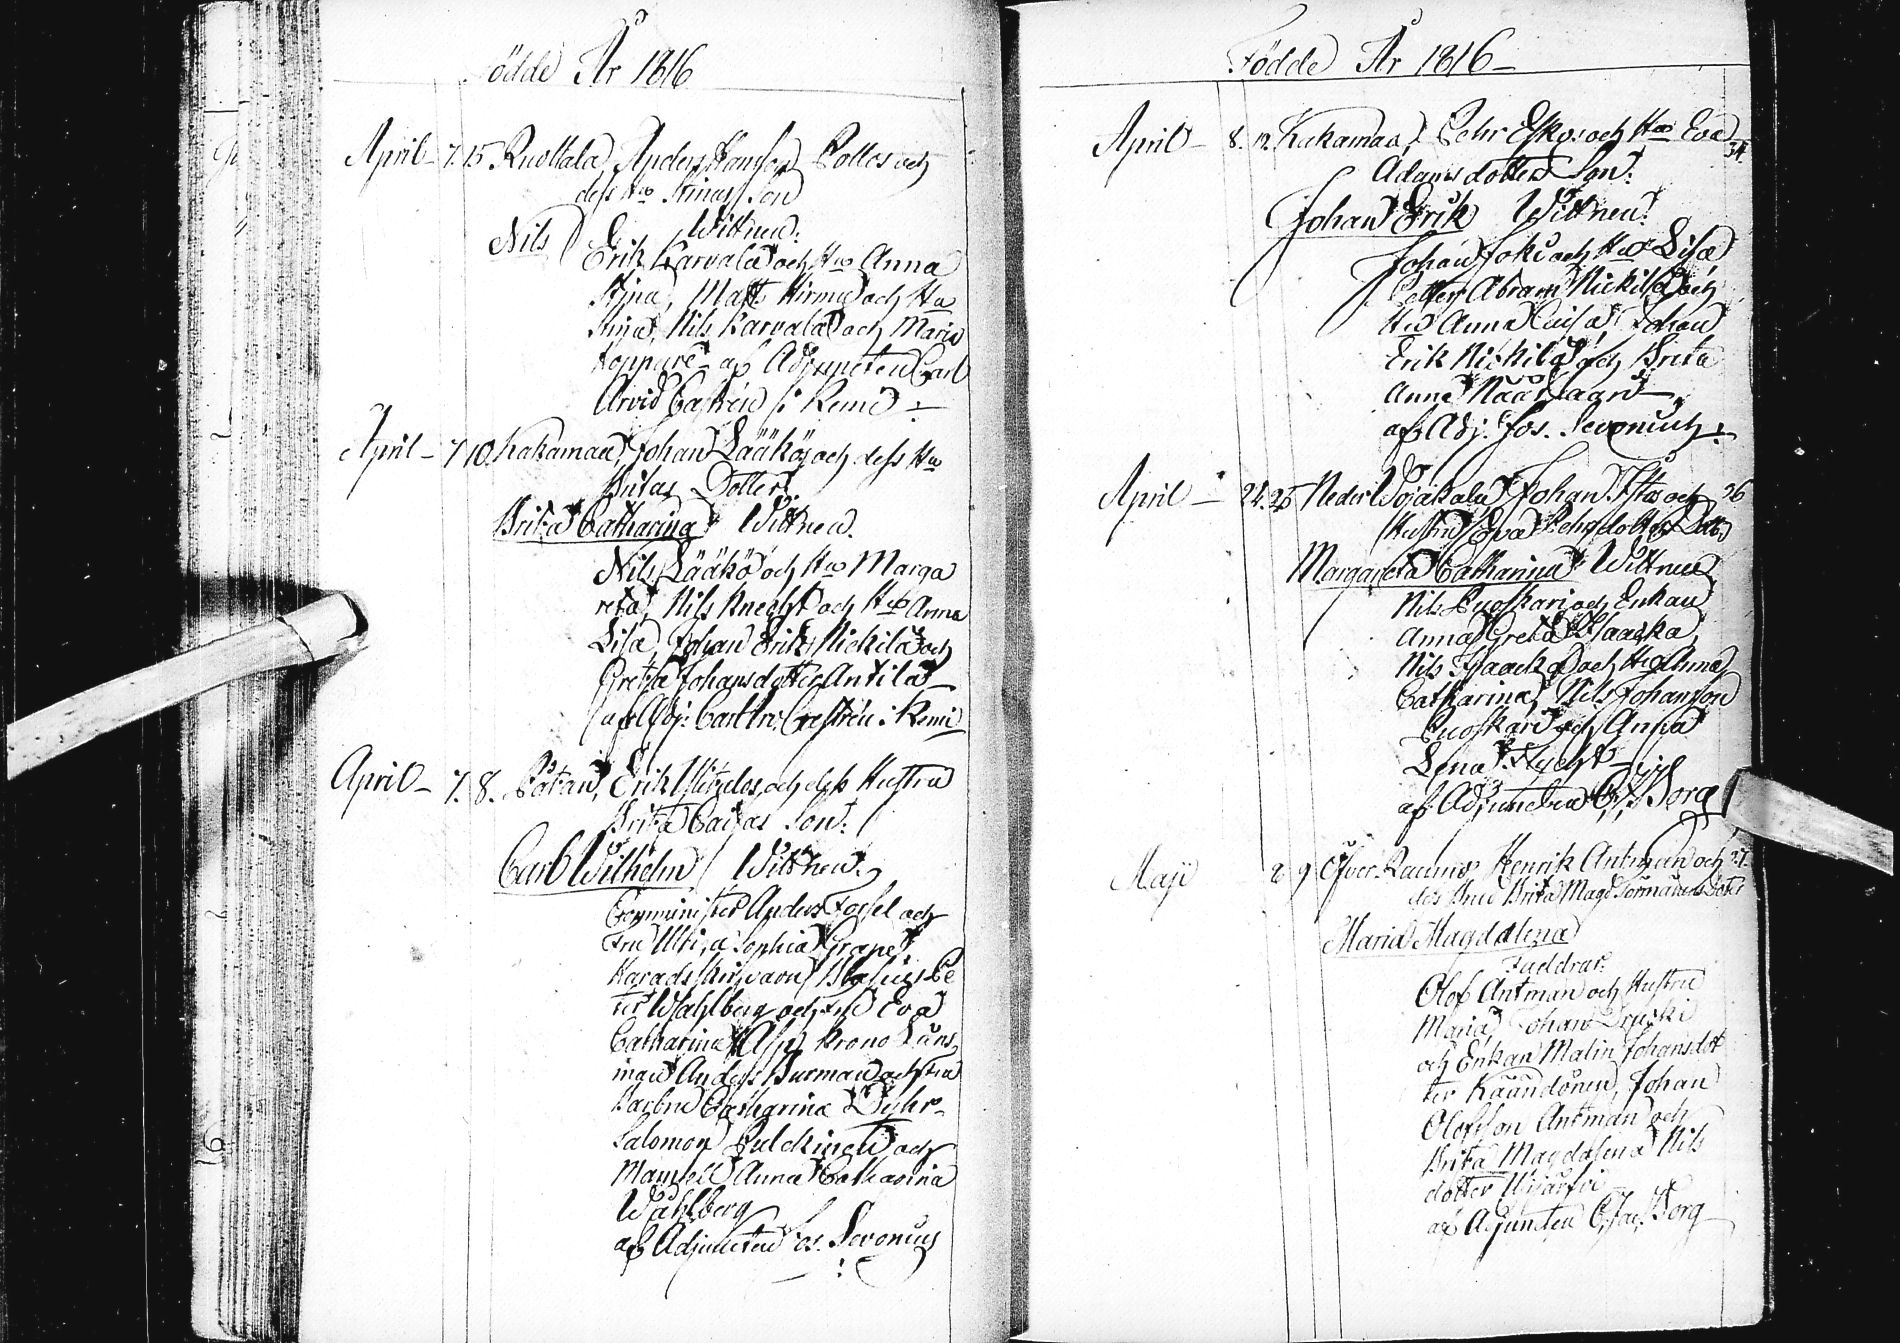 Födde År 1816
April - 7. 15. Ruottala, Anders Hansson Pollos och
dess Hu Stinas Son
Nils Wittnen:
Erik Karvala och Hu Anna
Stina, Matts Hirmu och Hu
Stina, Nils Karvala och Maria
af Adjuncten Carl
Arvid Castrén i Kemi -
April - 7 10. Kakamaa, Johan Lääkös och dess Hu
Britas Dotter.
Brita Catharina Wittnen.
Nils Lääkö och Hu Marga
reta, Nils Knecht och Hu Anna
Lisa, Johan Erik Nickilä och
Greta Johansdotter Antila -
af Adj: Carl Arv: Castrén i Kemi
April - 7. 8. Påtan, Erik och dess Hustru
Brita Caisas Son:
Carl Wilhelm Wittnen.
Comminister Anders och
Fru Ulrica Sophia Grape,
Häradsskrifvaren Pe
ter Wahlberg och Fru Eva
Catharina Alp, Krono Läns
man Anders Burman och Fru
Catharina Dyhr
Salomon Pulckinen och
Mamsell Anna Catharina
Wahlberg
af Adjuncten Jos. Sevonius
Födde År 1816 -
April - 8. 12. Kakamaa, Pehr Eskos och Hu Eva
Adamsdotters Son:
Johan Erik Wittnen:
Johan Joki och Hu Lisa
Petter Abram Nickilä och
Hu Anna Caisa, Johan
Erik Nickilä och Brita
Anna
af Adj: Jos. Sevonius
April - 24. 25 Neder Vojakala, Johan och 36
Hustru Eva Pehrsdotters Dott:
Margareta Catharina Wittnen
Nils Puoskari och Enkan
Anna Greta Isaacka,
Nils Isaacka och Hu Anna
Catharina, Nils Johansson
Puoskari och Anna
Lena
af Adjuncten C. J. Borg
Maji 2 9 Öfver Raumo Henrik Antman och 37.
des Hru Brita Magd.
Maria Magdalena
Faddrar.
Olof Antman och Hustru
Maria, Johan
och Enkan Malin Johansdot
ter Johan
Olofsson Antman och
Brita Magdalena Nils
dotter
af Adjuncten C. Jac. Borg